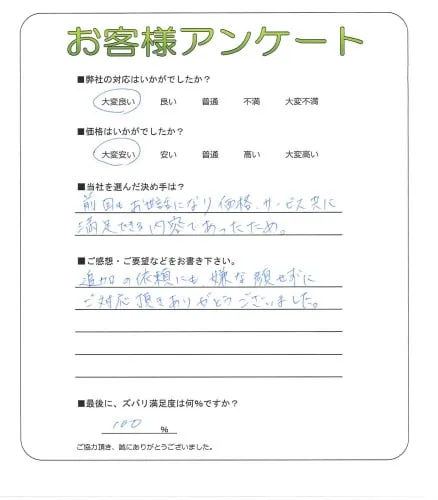 お客様アンケート
■弊社の対応はいかがでしたか？
大変良い 良い 普通 不満 大変不満
■価格はいかがでしたか？
大変安い 安い 普通 高い 大変高い
■当社を選んだ決め手は？
前回もお世話になり価格、サービス共に
満足できる内容であったため。
■ご感想・ご要望などをお書き下さい。
追加の依頼にも嫌な顔せずに
ご対応頂きありがとうございました。
■最後に、ズバリ満足度は何％ですか？
100 ％
ご協力頂き、誠にありがとうございました。